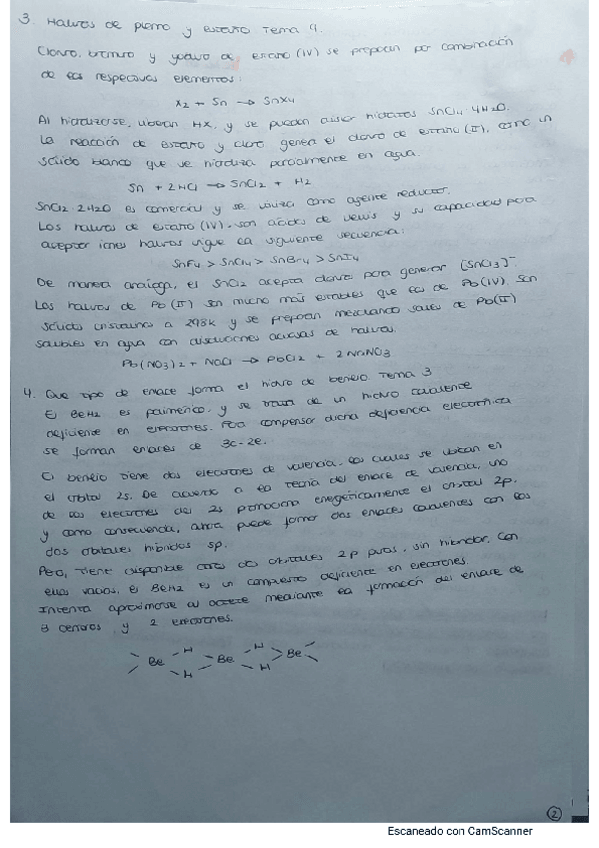 3. Haluros de plomo y estaño Tema 4.
Cloruro, bromuro y yoduro de estaño (IV) se preparan por combinación
de los respectivos elementos:
X2 + Sn → SnX4
Al hidrolizarse, liberan HX, y se pueden aislar hidratos SnCl4·4H2O.
La reacción de estaño y cloro genera el cloruro de estaño (II), como un
sólido blanco que se hidroliza parcialmente en agua.
Sn + 2HCl → SnCl2 + H2
SnCl2·2H2O es comercial y se utiliza como agente reductor.
Los haluros de estaño (IV), son ácidos de Lewis y su capacidad para
aceptar iones haluros sigue la siguiente secuencia:
SnF4 > SnCl4 > SnBr4 > SnI4
De manera análoga, el SnCl2 acepta cloruro para generar [SnCl3]⁻.
Los haluros de Pb(II) son mucho más estables que los de Pb(IV). Son
sólidos cristalinos a 298K y se preparan mezclando sales de Pb(II)
solubles en agua con disoluciones acuosas de haluros.
Pb(NO3)2 + NaCl → PbCl2 + 2NaNO3
4. Que tipo de enlace forma el hidruro de berilio. Tema 3
El BeH2 es polimérico, y se trata de un hidruro covalente
deficiente en electrones. Para compensar dicha deficiencia electrónica
se forman enlaces de 3c-2e.
El berilio tiene dos electrones de valencia, los cuales se ubican en
el orbital 2s. De acuerdo a la teoría del enlace de valencia, uno
de los electrones del 2s promociona energéticamente el orbital 2p.
y como consecuencia, ahora puede formar dos enlaces covalentes con los
dos orbitales híbridos sp.
Pero, tiene disponible otros dos orbitales 2p puros, sin hibridar. Con
ellos vacíos, el BeH2 es un compuesto deficiente en electrones.
Intenta aproximarse al octete mediante la formación del enlace de
3 centros y 2 electrones.
H H
Be Be Be
H H
2
Escaneado con CamScanner